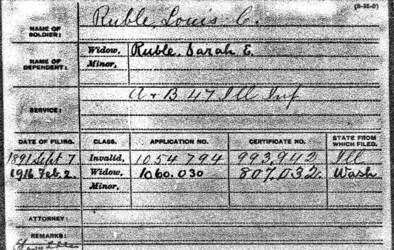 (3-35-0)
NAME OF SOLDIER: Ruble, Louis C.
NAME OF DEPENDENT: Widow, Ruble, Sarah E.
Minor,
SERVICE: A & B 47 Ill Inf
DATE OF FILING. CLASS. APPLICATION NO. CERTIFICATE NO. STATE FROM WHICH FILED.
1891 Sept 7 Invalid, 1054794 993,942 Ill
1916 Feb. 2. Widow, 1060.030 807,032. Wash
Minor,
ATTORNEY:
REMARKS: